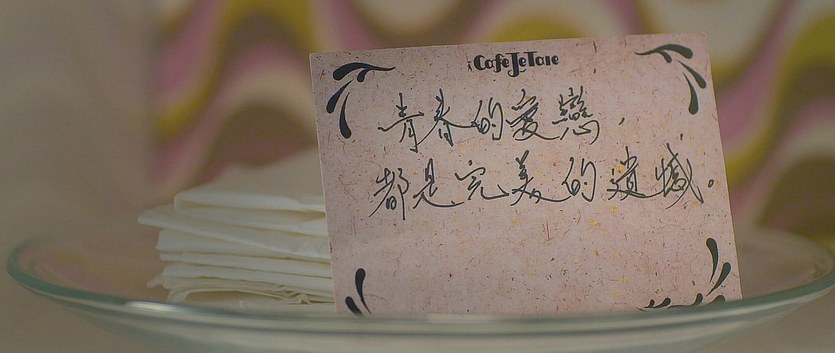 Cafe Je Taie
青春的愛戀，
都是完美的遺憾。